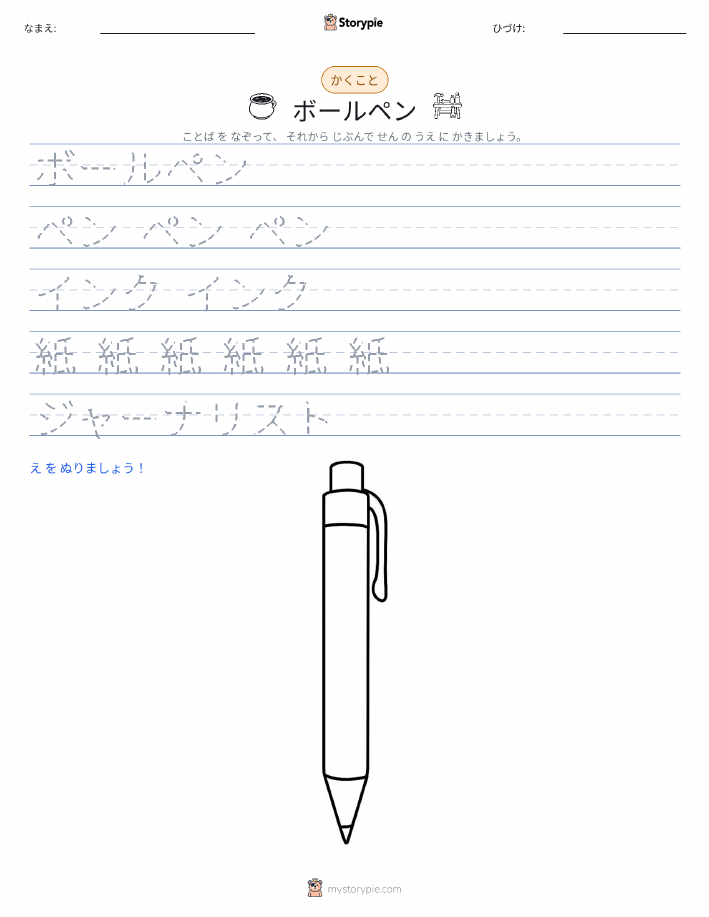 なまえ:
Storypie
ひづけ:
かくこと
ボールペン
ことば を なぞって、 それから じぶんで せん の うえ に かきましょう。
ボールペン
ペン ペン ペン
インク インク
紙 紙 紙 紙 紙 紙
ジャーナリスト
え を ぬりましょう！
mystorypie.com